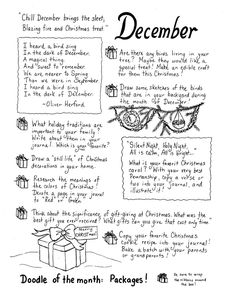 "Chill December brings the sleet,
Blazing fire and Christmas treat."
December
I heard a bird sing
In the dark of December.
A magical thing
And sweet to remember.
We are nearer to Spring
Than we were in September
I heard a bird sing
In the dark of December.
-Oliver Herford
Are there any birds living in your
tree? Maybe they would like a
special treat! Make an edible craft
for them this Christmas!
Draw some sketches of the birds
that are in your backyard during
the month of December
What holiday traditions are
important to your family?
Write about them in your
journal. Which is your favorite?
"Silent Night, Holy Night,
All is calm, All is Bright..."
What is your favorite Christmas
carol? With your very best
Penmanship, Copy a verse or
two into your journal, and
illustrate it!
Draw a "still life" of Christmas
decorations in your home.
Research the meanings of
the colors of Christmas!
Devote a page in your journal
to "Red" or "Green"
Think about the significance of gift-giving at Christmas. What was the
best gift you ever received? What gifts can you give that cost only time
Copy your favorite Christmas
cookie recipe into your journal!
Bake a batch with your parents
or grandparents!
Doodle of the month: Packages!
Be sure to wrap
the ribbons around
the box!